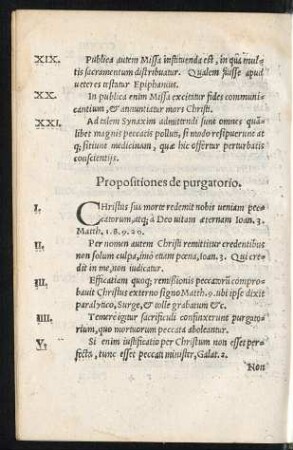 XIX. Publica autem Missa instituenda est, in qua mul-
tis sacramentum distribuatur. Qualem fuisse apud
ueteres testatur Epiphanius.
XX. In publica enim Missa excitatur fides communi-
cantium, & annunciatur mors Christi.
XXI. Ad talem Synaxim admittendi sunt omnes quã-
libet magnis peccatis polluti, si modo resipuerunt at
q; sitiunt medicinam, quæ hic offertur perturbatis
conscientijs.
Propositiones de purgatorio.
I. CHristus sua morte redemit nobis ueniam pec-
catorum, atq; à Deo uitam æternam Ioan. 3.
Matth. 1. 8. 9. 20.
II. Per nomen autem Christi remittitur credentibus
non solum culpa, imo etiam pœna, Ioan. 3. Qui cre-
dit in me, non iudicatur.
III. Efficatiam quoq; remissionis peccatorũ compro-
bauit Christus externo signo Matth. 9. ubi ipse dixit
paralytico, Surge, & tolle grabatum &c.
IIII. Temere igitur sacrificuli confinxerunt purgato-
rium, quo mortuorum peccata aboleantur.
V. Si enim iustificatio per Christum non esset per-
fecta, tunc esset peccati minister, Galat. 2.
Non